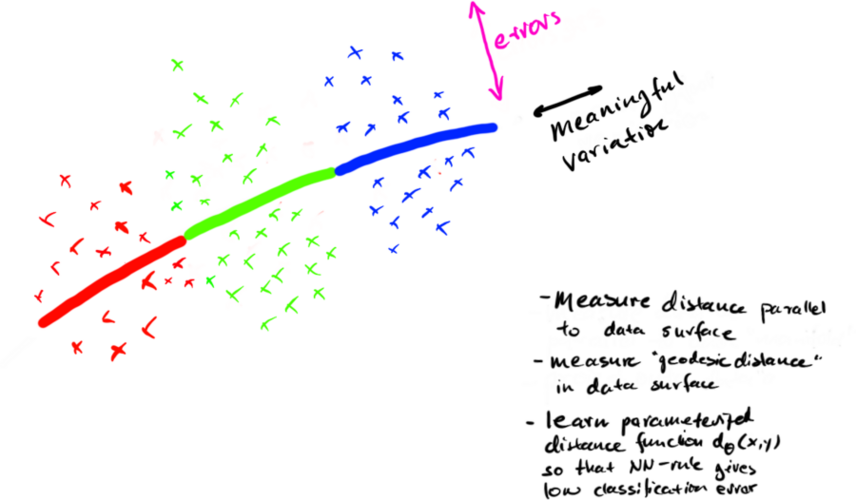 errors
meaningful
variation
- Measure distance parallel
to data surface
- measure "geodesic distance"
in data surface
- learn parameterized
distance function dθ(x,y)
so that NN-rule gives
low classification error